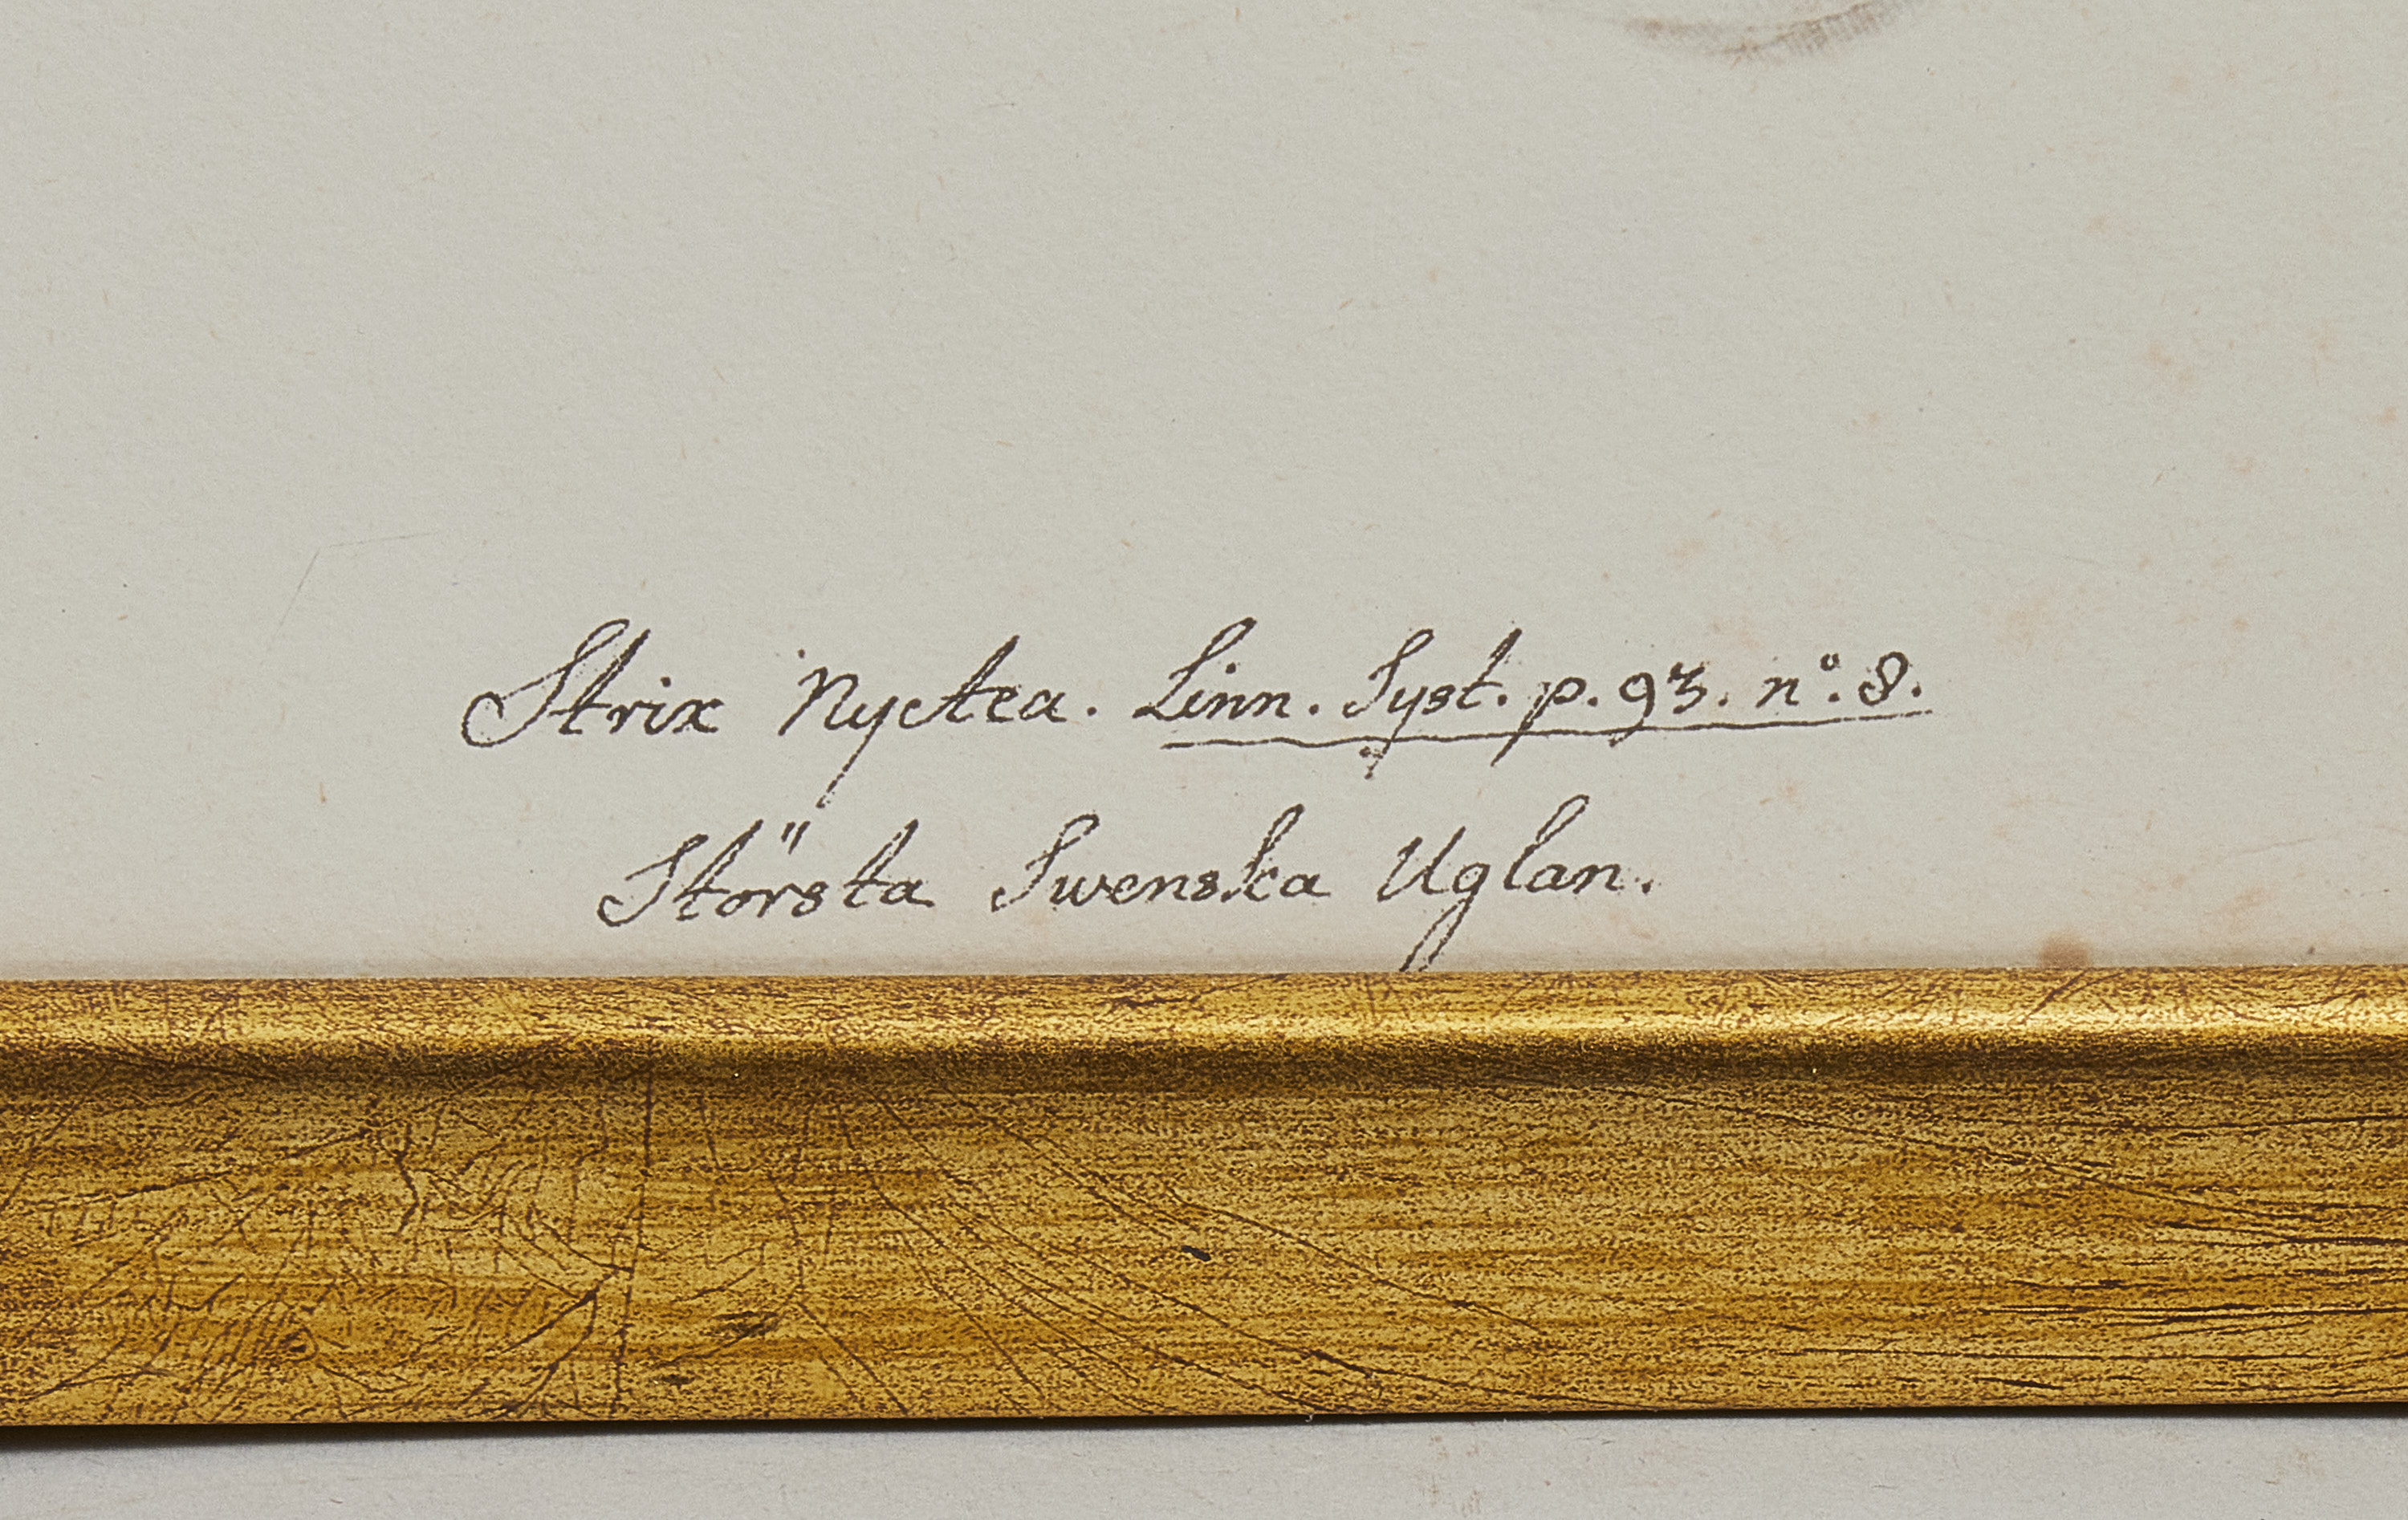 Strix Nyctea. Linn. Syst. p. 93. n°. 8.
Största Swenska Uglan.